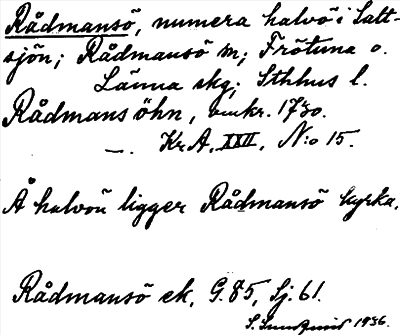 Rådmansö, numera halvö i Salt-
sjön; Rådmansö sn; Frötuna o.
Länna skg; Sthlms l.
Rådmansöhn, omkr. 1730.
—. Kr.A. XXII, N:o 15.
Å halvön ligger Rådmansö kyrka.
Rådmansö ek. G. 85, Sj. 61.
S. 1936.